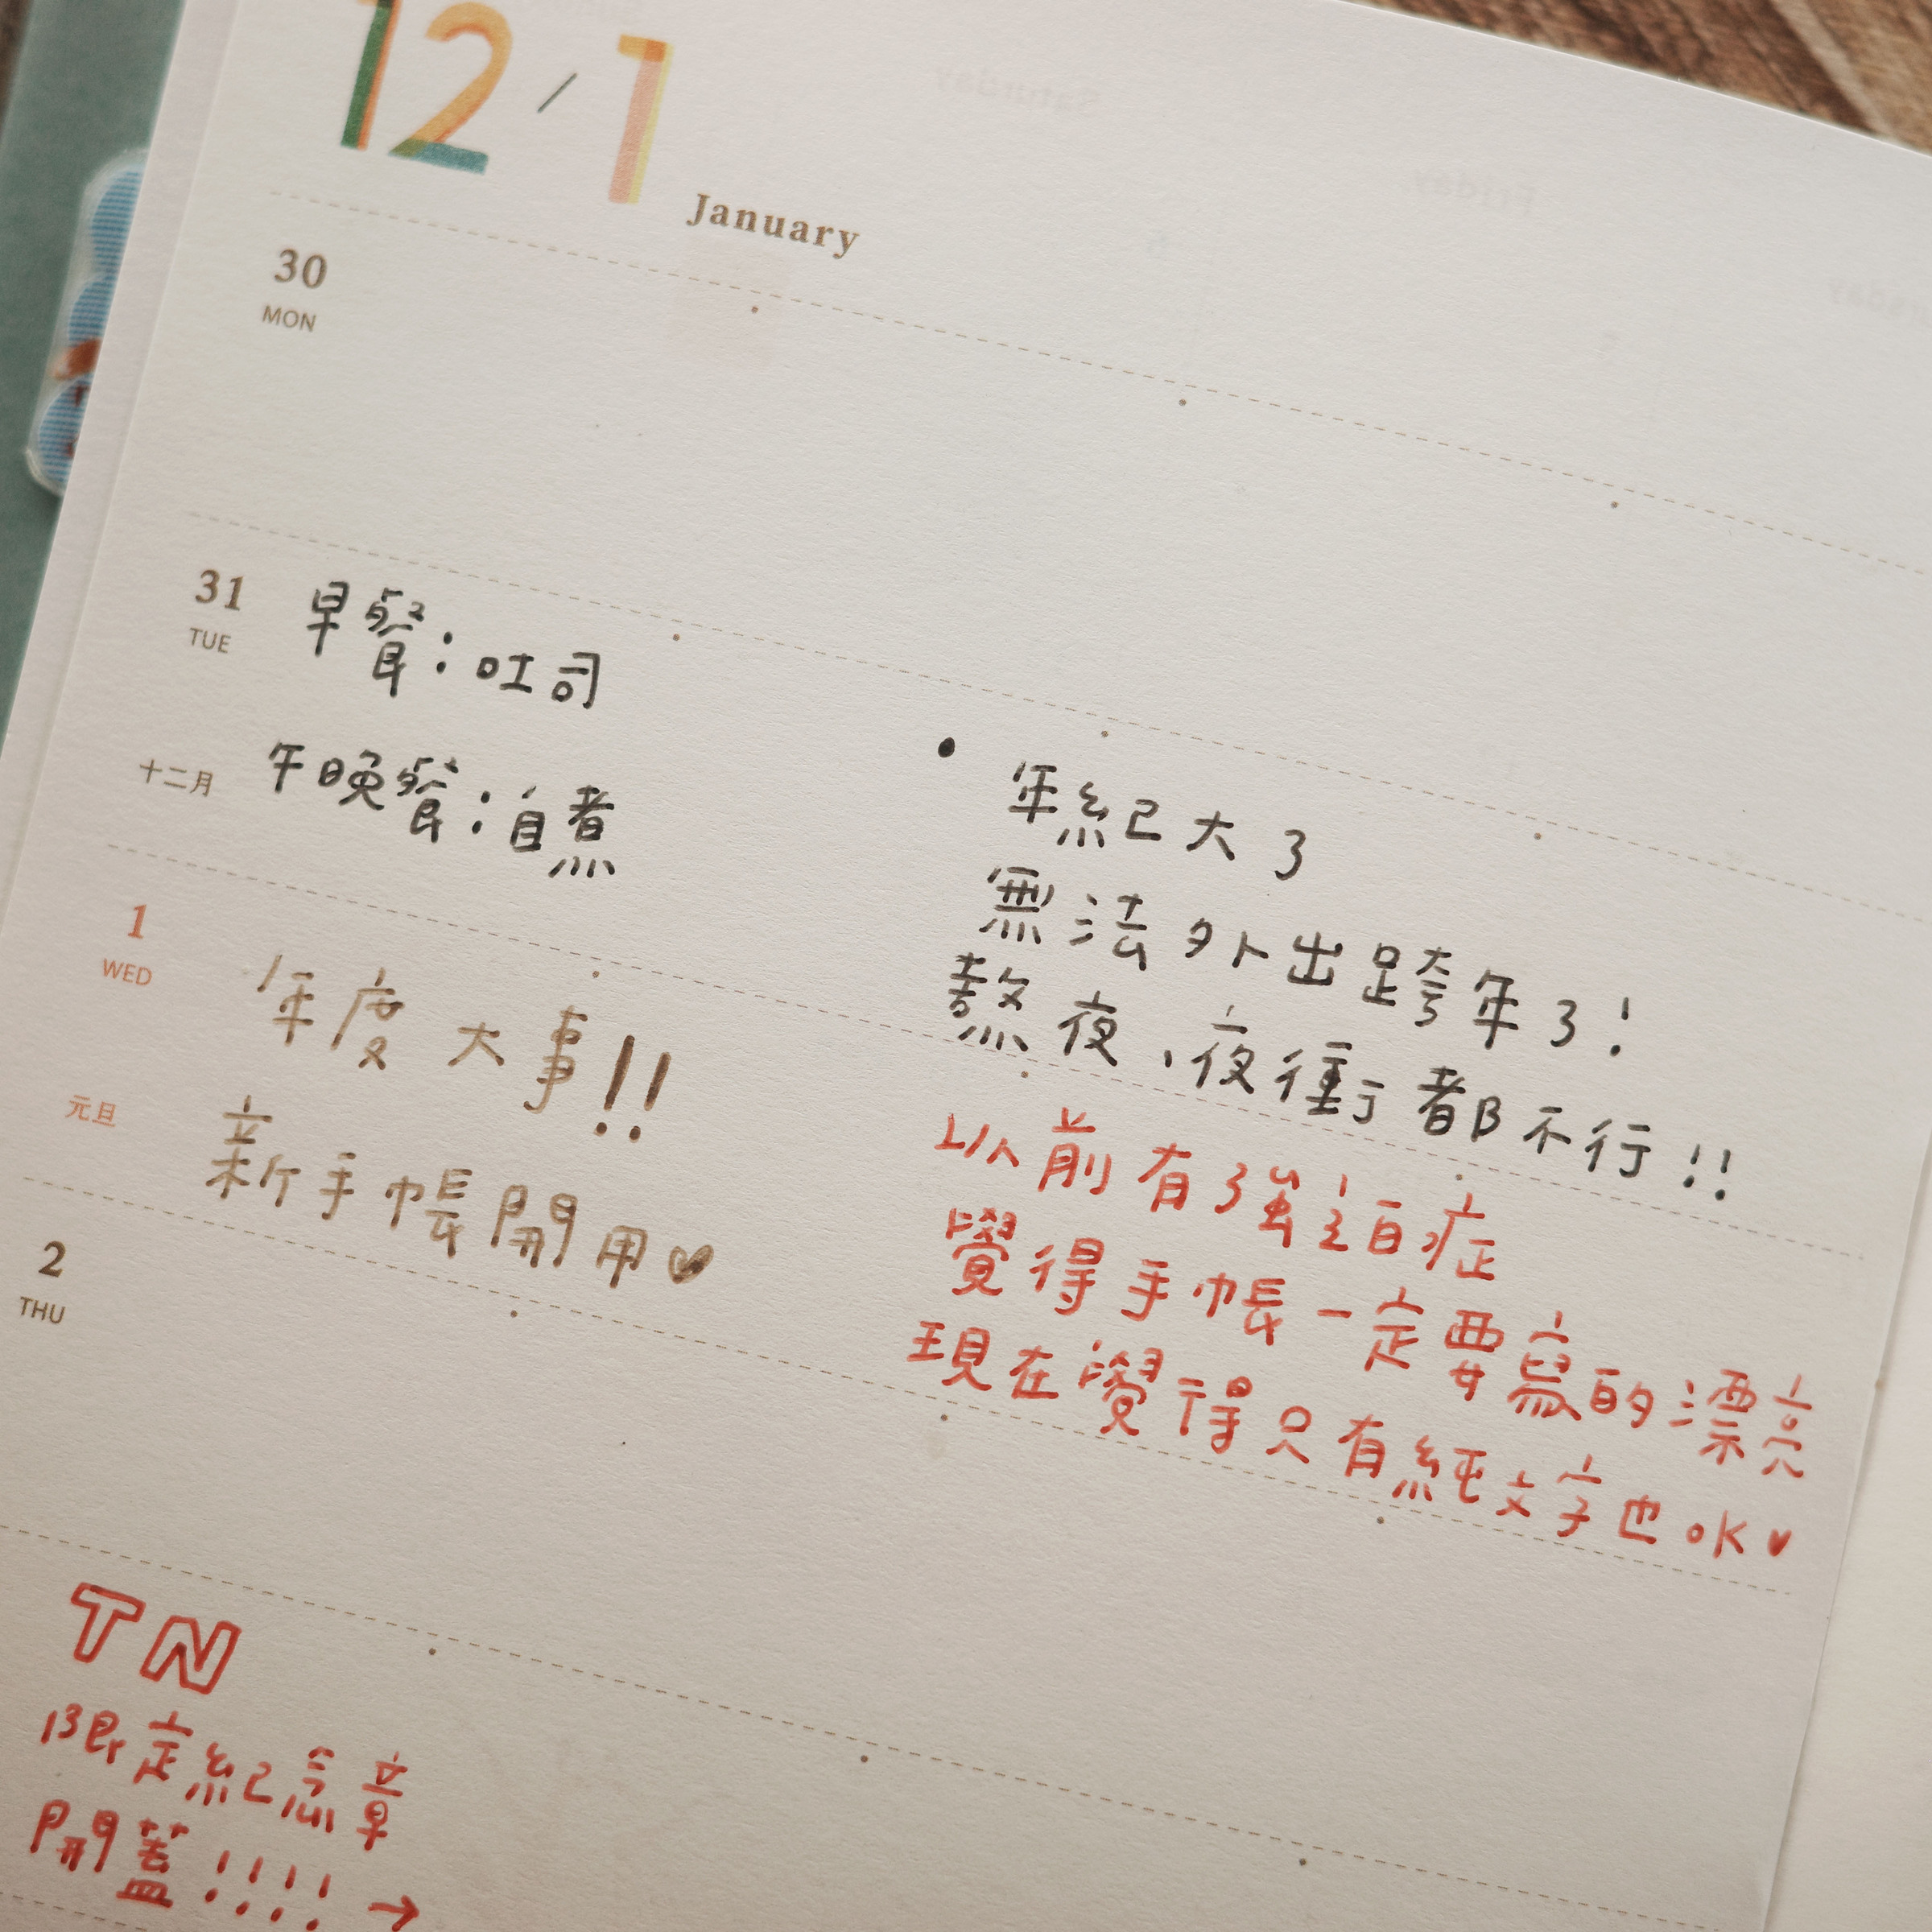 12/1
January
30
MON
31
TUE
十二月
早餐：吐司
午晚餐：自煮
• 年紀大了
無法外出跨年了！
熬夜、夜衝都不行!!
1
WED
元旦
年度大事!!
新手帳開用♥
以前有強迫症
覺得手帳一定要寫的漂亮
現在覺得只有純文字也OK♥
2
THU
TN
限定紀念章
開蓋!!!! →